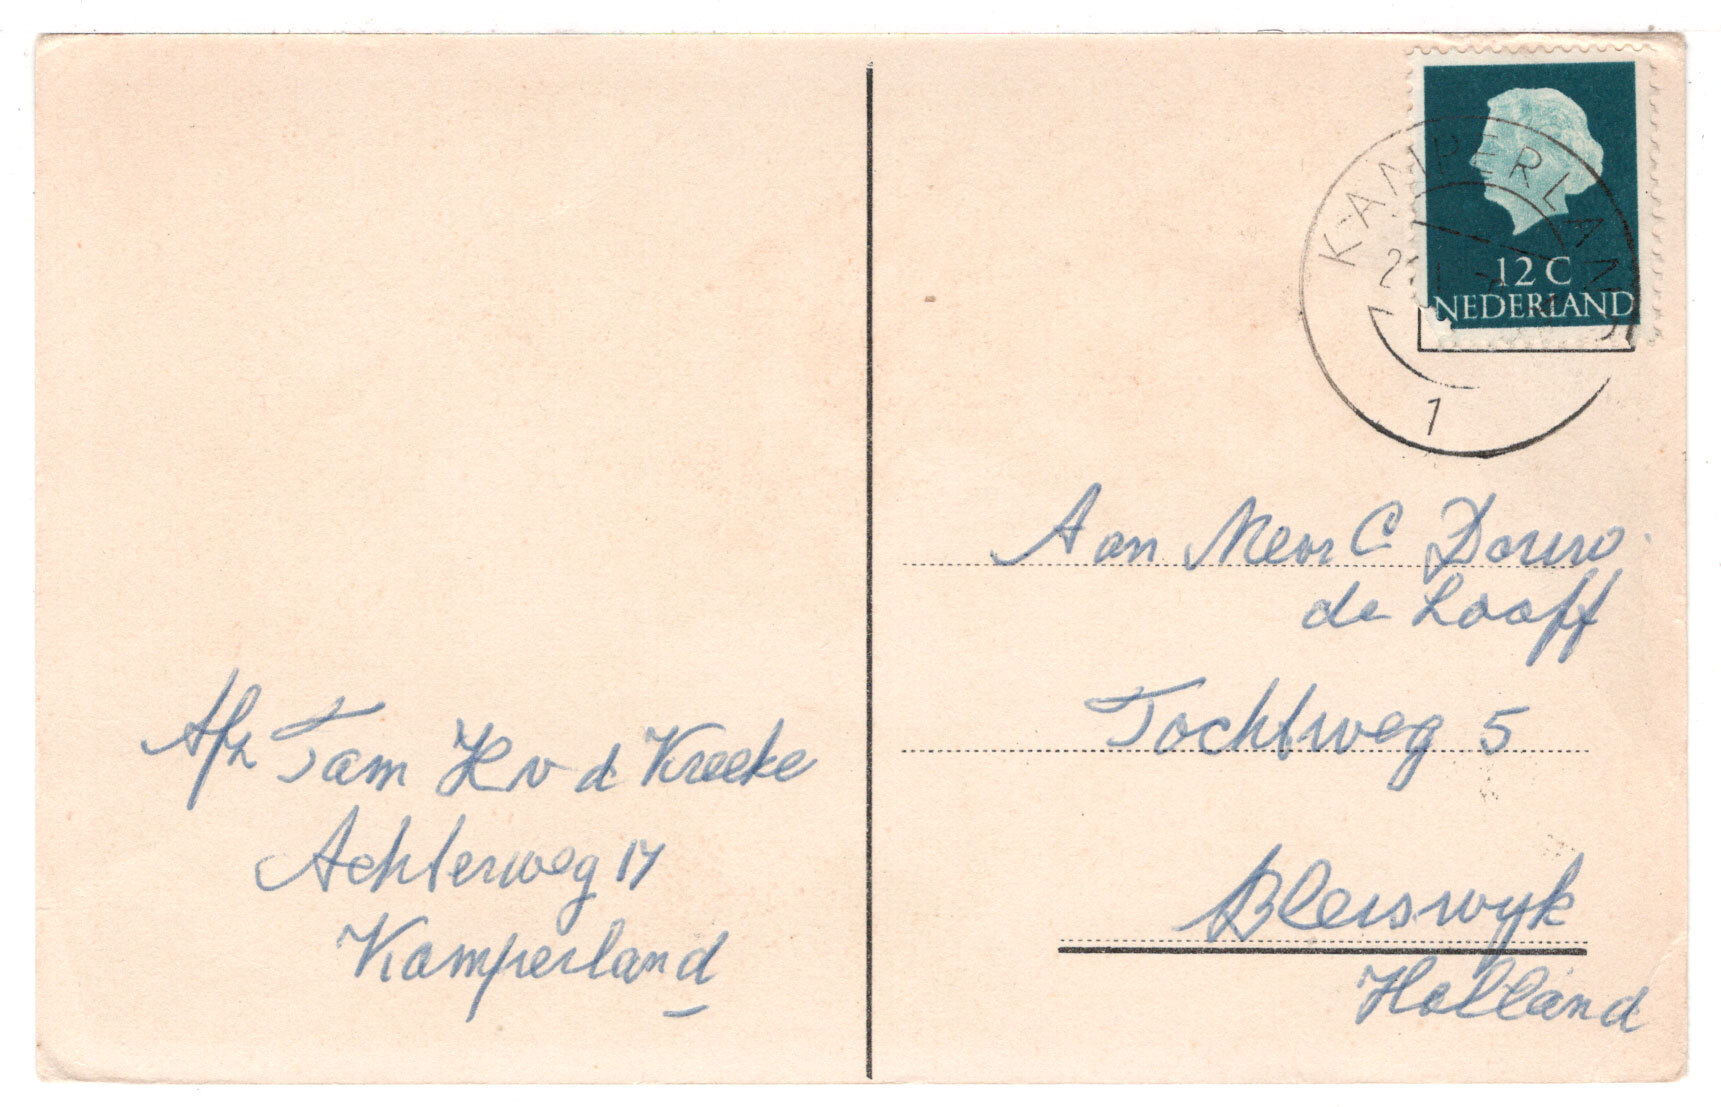 12 C
NEDERLAND
KAMPERLAND
1
Aan Mevr C Douw
de Looff
Tochtweg 5
Bleiswyk
Holland
Afz Fam H v d Kreeke
Achterweg 17
Kamperland